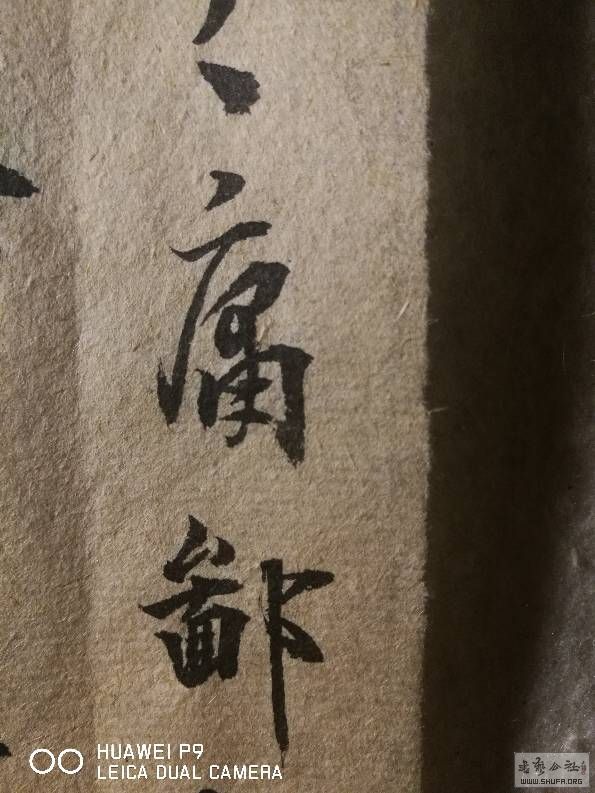 庸鄙
HUAWEI P9
LEICA DUAL CAMERA
书艺公社
WWW.SHUFA.ORG